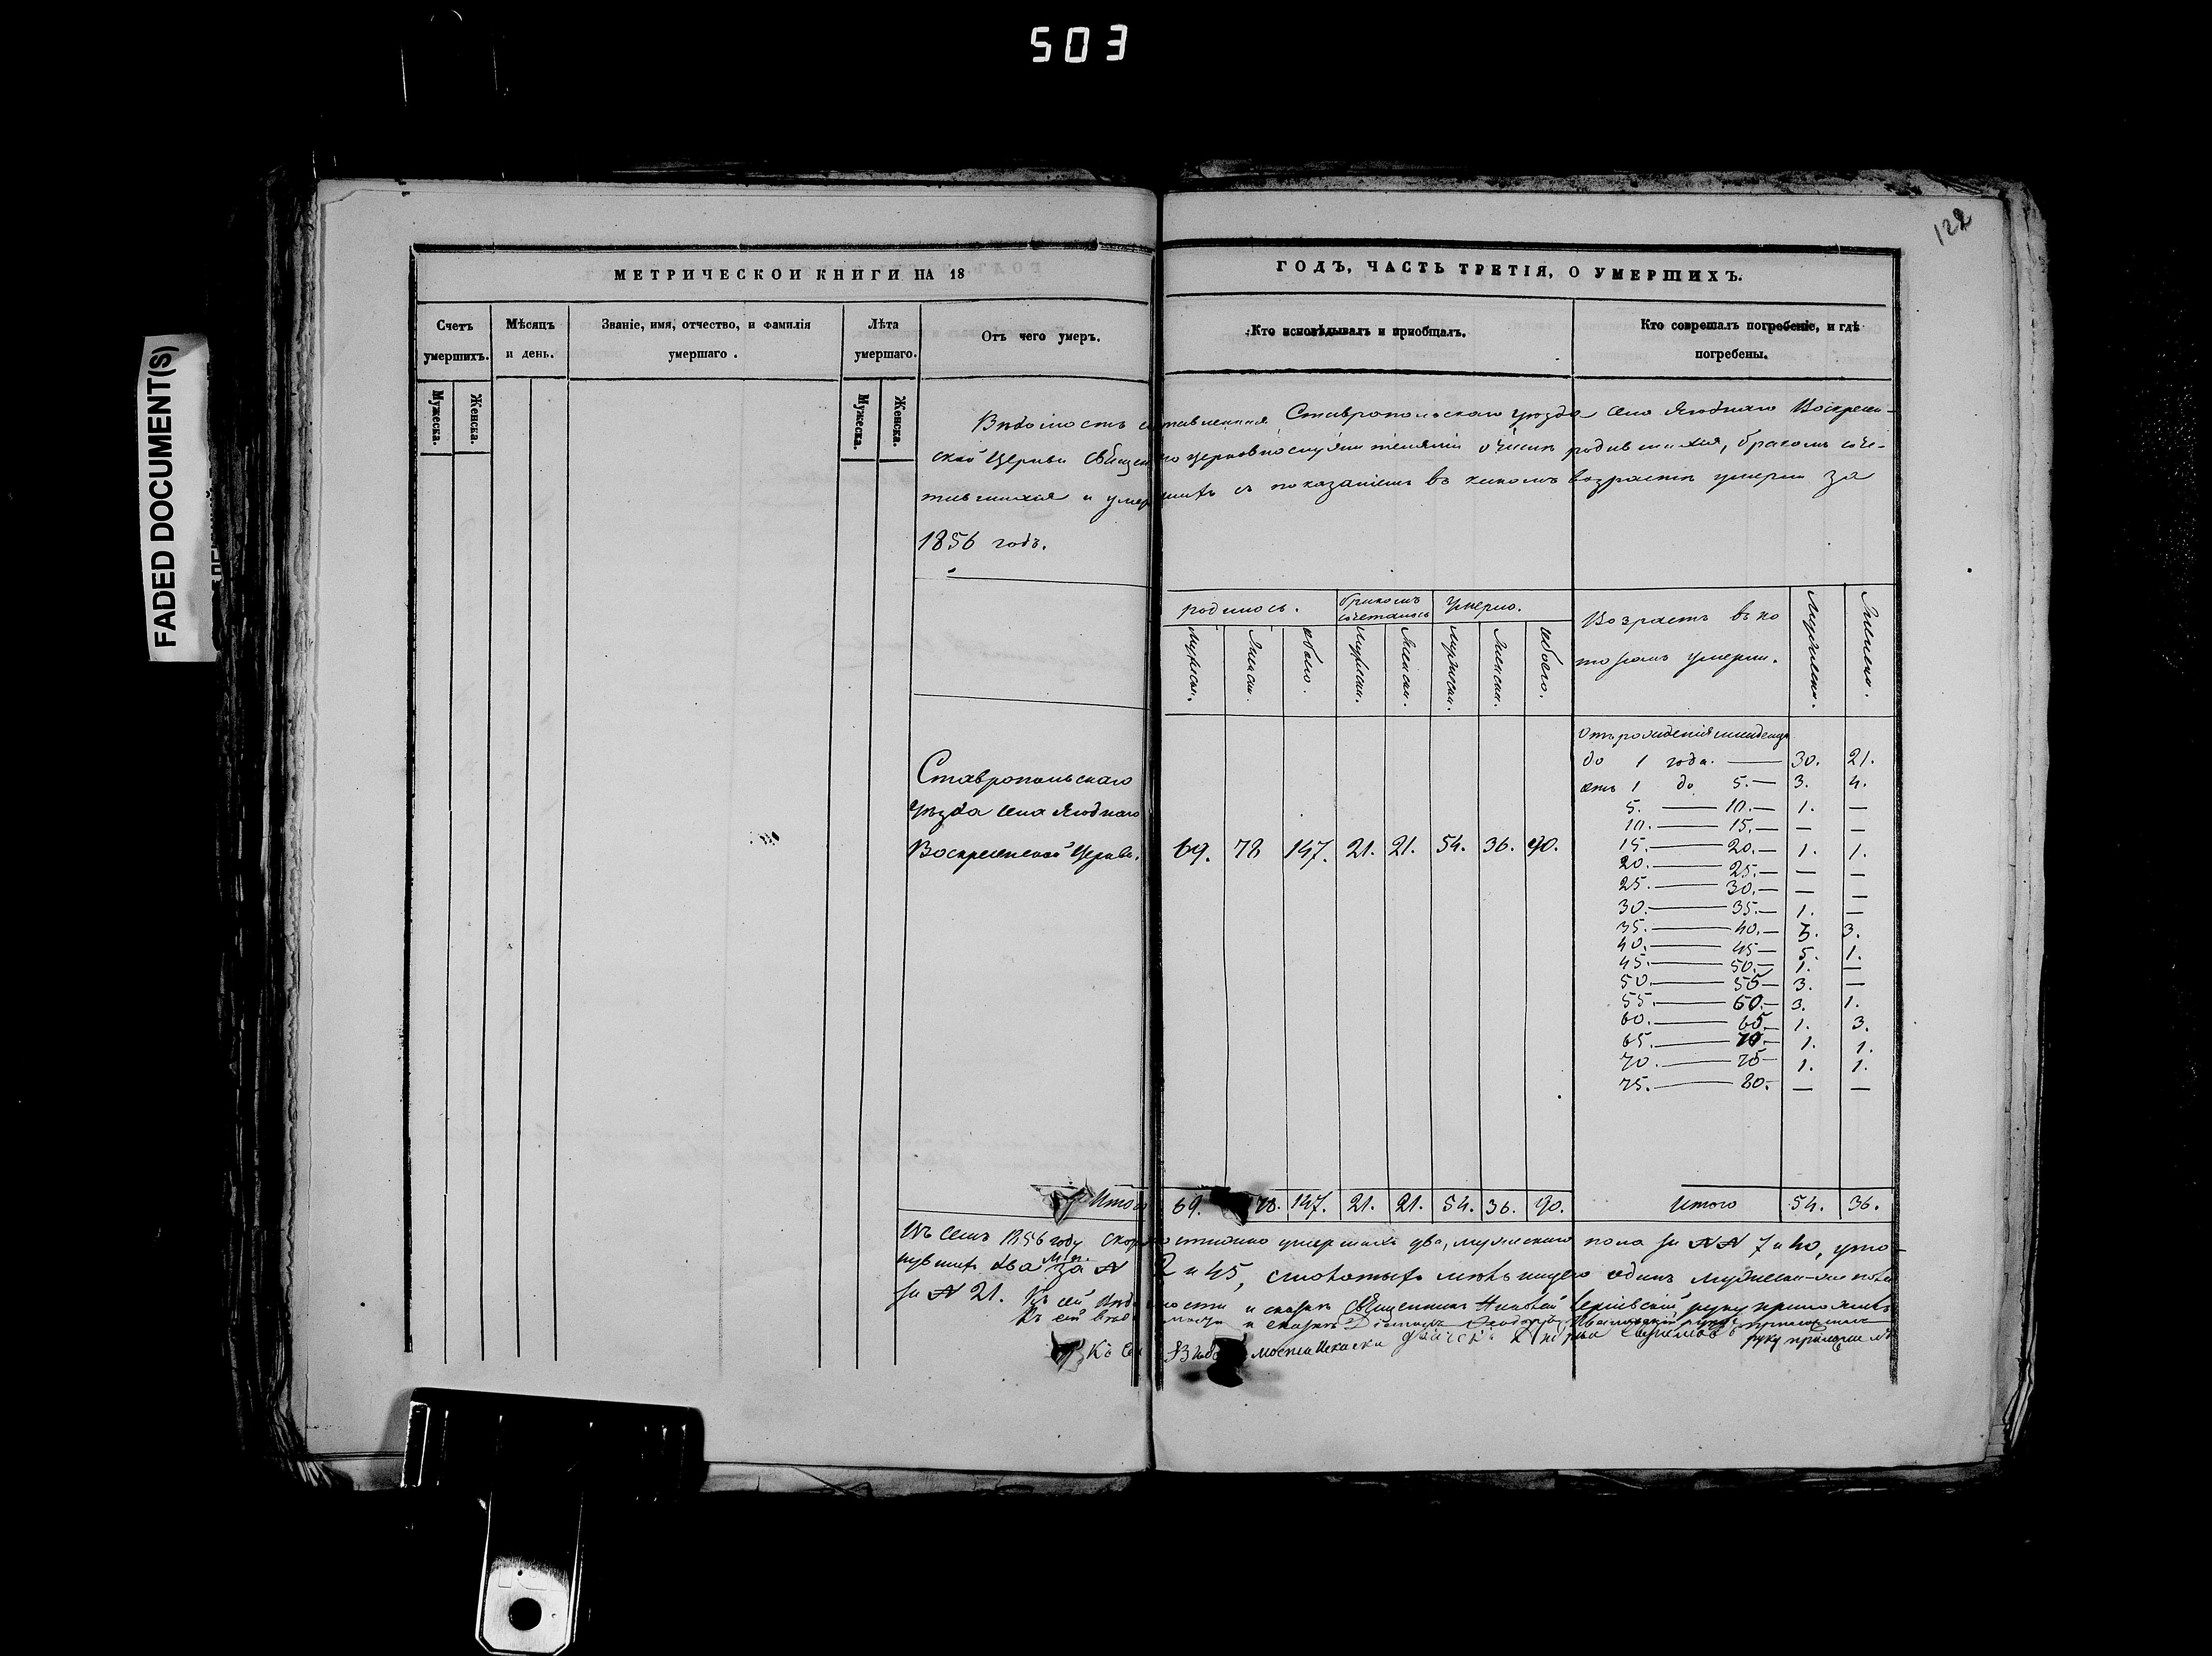 503
122
FADED DOCUMENT(S)
МЕТРИЧЕСКОИ КНИГИ НА 18 ГОДЪ, ЧАСТЬ ТРЕТІЯ, О УМЕРШИХЪ.
Счетъ умершихъ.
Мужеска.
Женска.
Мѣсяцъ и день.
Званіе, имя, отчество, и фамилія умершаго.
Лѣта умершаго.
Мужеска.
Женска.
Отъ чего умеръ.
Кто исповѣдывалъ и приобщалъ.
Кто соврешалъ погребеніе, и гдѣ погребены.
Вѣдомость составленная Ставропольскаго уѣзда села Ягоднаго Воскресен-
ской Церкви Священно церковнослужителями о числѣ родившихся, бракомъ соче-
тавшихся и умершихъ съ показаніемъ въ какомъ возрастѣ умерли за
1856 годъ.
родилось. бракомъ сочеталось Умерло.
Мужеск. Женск. обоего. Мужеск. Женск. Мужеск. Женск. обоего.
Возрастъ въ ко
торомъ умерли.
Мужеска. Женска.
Ставропольскаго
уѣзда села Ягоднаго
Воскресенской Церкви. 69. 78 147. 21. 21. 54. 36. 90.
Отъ рожденія младенцы
до 1 года. — 30. 21.
отъ 1 до 5. — 3. 4.
5. — 10. — 1. —
10. — 15. — — —
15. — 20. — 1. 1.
20. — 25. — — —
25. — 30. — — —
30. — 35. — 1. —
35. — 40. — 3. 3.
40. — 45 — 5. 1.
45. — 50. — 1. —
50. — 55 — 3. —
55. — 60. — 3. 1.
60. — 65 — 1. 3.
65. — 70 — 1. 1.
70. — 75 — 1. 1.
75. — 80. — — —
Итого 69. 78. 147. 21. 21. 54. 36. 90. Итого 54. 36.
Въ семъ 1856 году скоропостижно умершихъ два, мужескаго пола за №№ 7 и 40, уто-
нувшихъ два м. п. за № 2 и 45, одинъ
за № 21. Къ сей вѣдомости и Священник руку приложилъ
Къ сей вѣдомости и
Къ сей Вѣдомости руку приложилъ